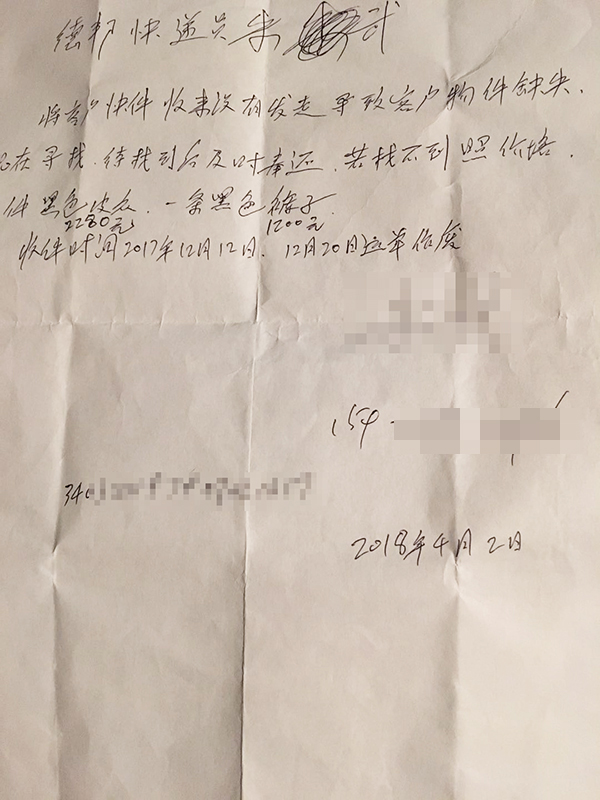 德邦快递员朱 武
将客户快件收来没有发走导致客户物件缺失.
在寻找.待找到后及时奉还.若找不到照价培.
件黑色皮衣.一条黑色裤子.
2280元 1200元
收件时间2017年12月12日.12月20日运单作废
154
340
2018年4月2日